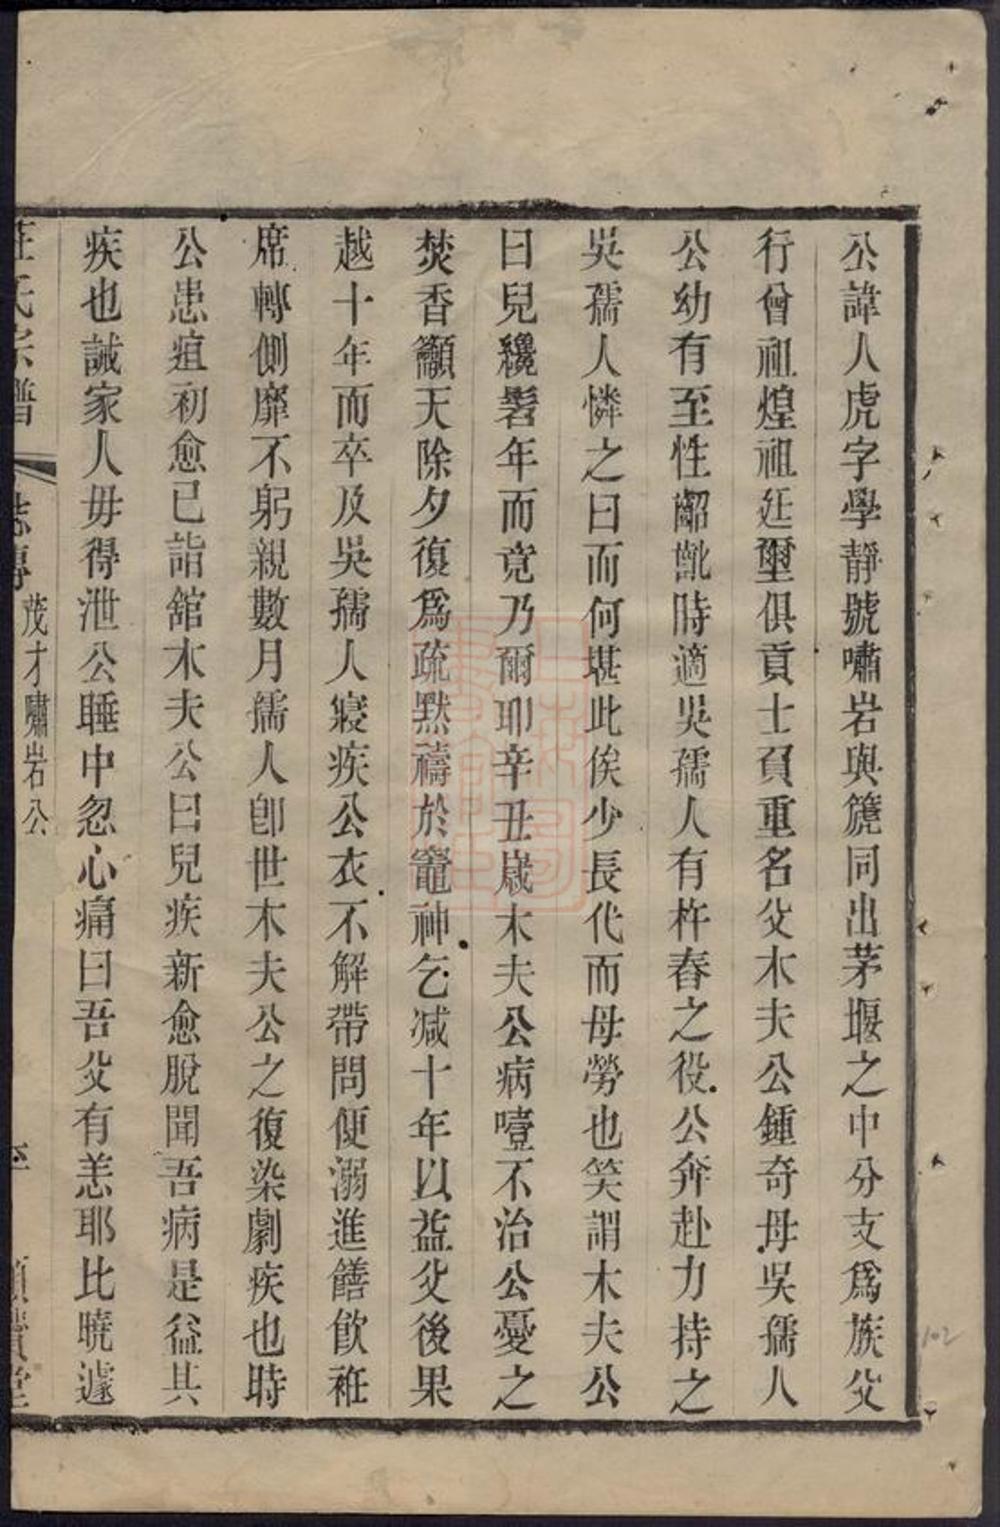 公諱人虎字學靜號嘯岩與簏同出茅堰之中分支爲族父
行曾祖煌祖廷璽俱貢士負重名父木夫公鍾奇母吳孺人
公幼有至性齠齔時適吳孺人有杵舂之役公奔赴力持之
吳孺人憐之曰而何堪此俟少長代而母勞也笑謂木夫公
曰兒纔髫年而竟乃爾耶辛丑歲木夫公病噎不治公憂之
焚香籲天除夕復爲疏默禱於竈神乞减十年以益父後果
越十年而卒及吳孺人寢疾公衣不解帶問便溺進饍飮袵
席轉側靡不躬親數月孺人卽世木夫公之復染劇疾也時
公患疽初愈已詣舘木夫公曰兒疾新愈脫聞吾病是益其
疾也誡家人毋得泄公睡中忽心痛曰吾父有恙耶比曉遽
氏宗譜 誌傳 茂才嘯岩公